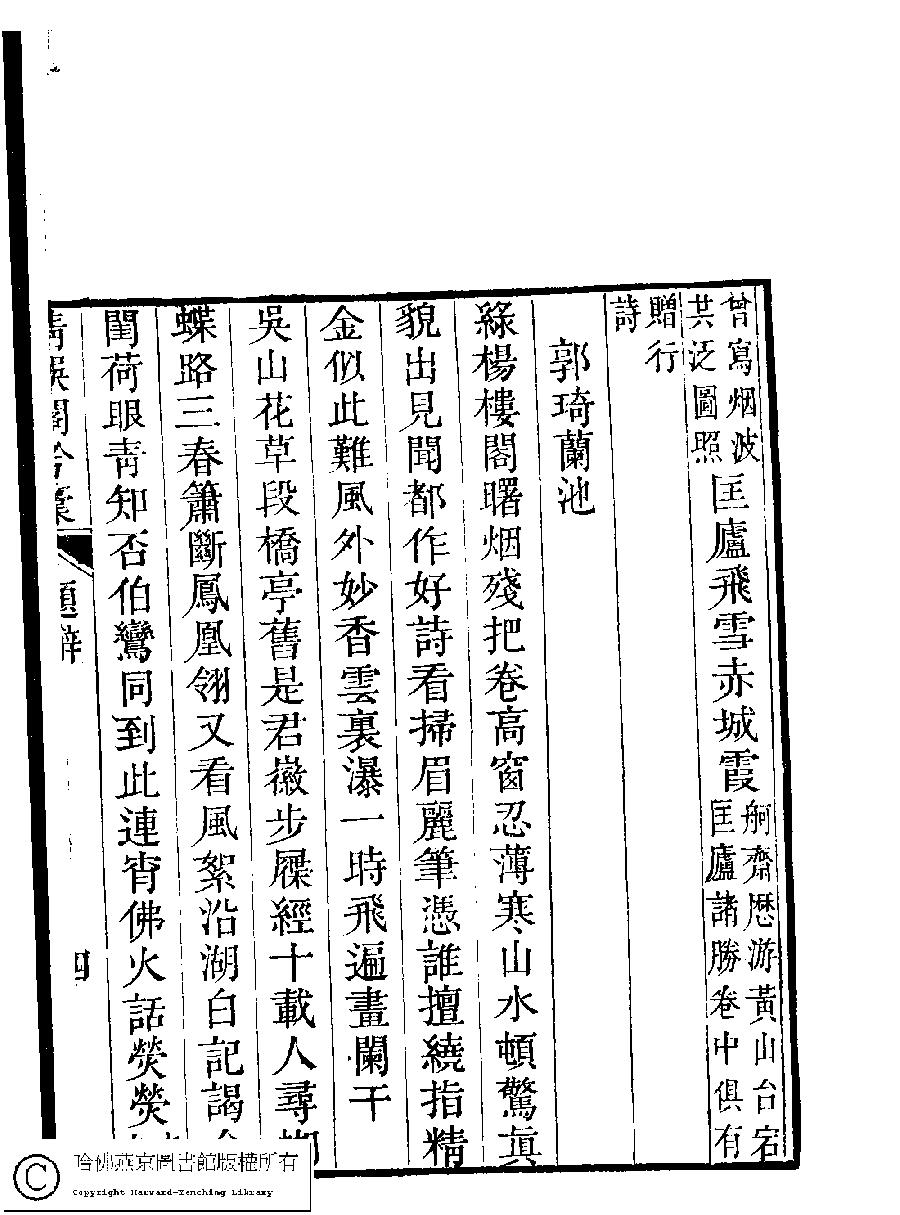 曾寫烟波
共泛圖照
匡廬飛雪赤城霞
舸齋歷游黃山台宕
匡廬諸勝卷中俱有
贈行
詩
郭琦蘭池
綠楊樓閣曙烟殘把卷高窗忍薄寒山水頓驚真
貌出見聞都作好詩看掃眉麗筆憑誰擅繞指精
金似此難風外妙香雲裏瀑一時飛遍畫闌干
吳山花草段橋亭舊是君徽步屧經十載人尋
蝶路三春簫斷鳳凰翎又看風絮沿湖白記謁
閨荷眼青知否伯鸞同到此連宵佛火話熒熒
題辭
四
哈佛燕京圖書館版權所有
Copyright Harvard-Yenching Library